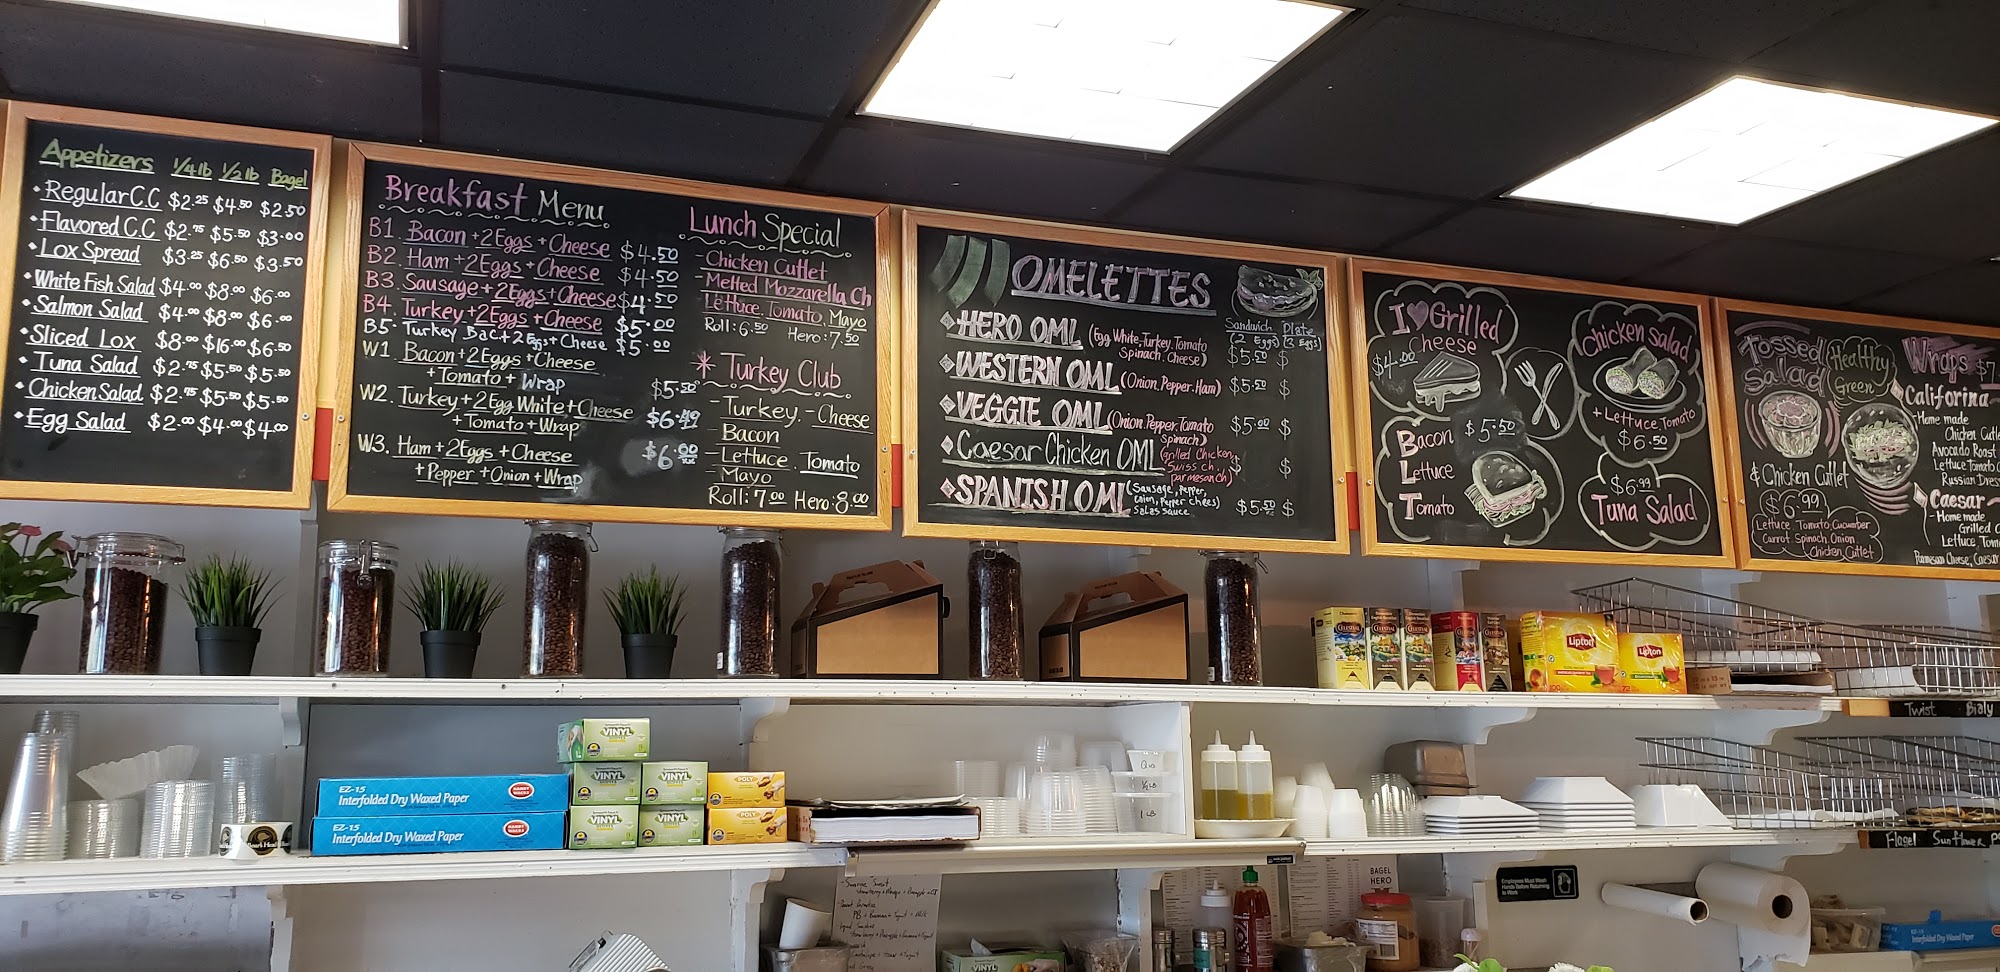 Appetizers 1/4 lb 1/2 lb Bagel
Regular C.C $2.25 $4.50 $2.50
Flavored C.C $2.75 $5.50 $3.00
Lox Spread $3.25 $6.50 $3.50
White Fish Salad $4.00 $8.00 $6.00
Salmon Salad $4.00 $8.00 $6.00
Sliced Lox $8.00 $16.00 $6.50
Tuna Salad $2.75 $5.50 $5.50
Chicken Salad $2.75 $5.50 $5.50
Egg Salad $2.00 $4.00 $4.00
Breakfast Menu
B1. Bacon + 2 Eggs + Cheese $4.50
B2. Ham + 2 Eggs + Cheese $4.50
B3. Sausage + 2 Eggs + Cheese $4.50
B4. Turkey + 2 Eggs + Cheese $5.00
B5. Turkey Bac. + 2 Eggs + Cheese $5.00
W1. Bacon + 2 Eggs + Cheese
+ Tomato + Wrap $5.50
W2. Turkey + 2 Egg White + Cheese
+ Tomato + Wrap $6.49
W3. Ham + 2 Eggs + Cheese
+ Pepper + Onion + Wrap $6.00
Lunch Special
- Chicken Cutlet
- Melted Mozzarella Ch
Lettuce, Tomato, Mayo
Roll: 6.50 Hero: 7.50
* Turkey Club
- Turkey. - Cheese
- Bacon
- Lettuce. Tomato
- Mayo
Roll: 7.00 Hero: 8.00
OMELETTES
Sandwich Plate
(2 Eggs) (3 Eggs)
HERO OML (Egg White, Turkey, Tomato
Spinach, Cheese) $5.50 $
WESTERN OML (Onion. Pepper. Ham) $5.50 $
VEGGIE OML (Onion. Pepper. Tomato
Spinach) $5.00 $
Caesar Chicken OML (Grilled Chicken,
Swiss ch,
parmesan ch) $ $
SPANISH OML (Sausage, Pepper,
Onion, Pepper Chees)
Salas sauce $5.50 $
I ♥ Grilled
Cheese
$4.00
Bacon $5.50
Lettuce
Tomato
Chicken salad
+ Lettuce, Tomato
$6.50
$6.99
Tuna Salad
Tossed
Salad
Healthy
Green
& Chicken Cutlet
$6.99
Lettuce Tomato Cucumber
Carrot Spinach Onion
Chicken Cutlet
Wraps $7.
Califorina
- Home made
Chicken Cutle
Avocado Roast
Lettuce Tomato
Russian Dres
Caesar
- Home made
Grilled C
Lettuce, Tom
Parmesan Cheese, Caesar
CELESTIAL
Lipton
Lipton
Twist Bialy
VINYL
VINYL
VINYL
VINYL
VINYL
POLY
POLY
EZ-15
Interfolded Dry Waxed Paper
EZ-15
Interfolded Dry Waxed Paper
1/2 LB
1 LB
Flagel Sunflower
BAGEL
HERO
Employees Must Wash
Hands Before Returning
to Work
VINYL
Interfolded Dry Waxed Paper